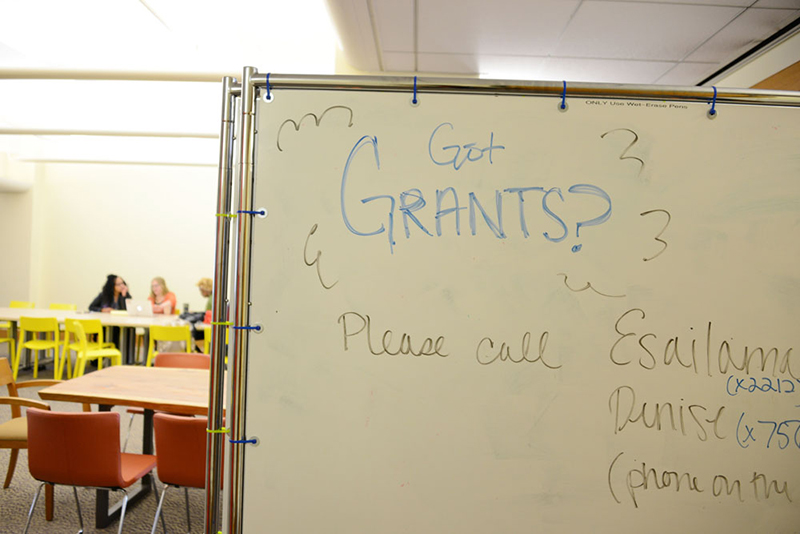 ONLY Use Wet-Erase Pens
Got
GRANTS?
Please call Esailama
(x2212)
Denise (x756
(phone on the